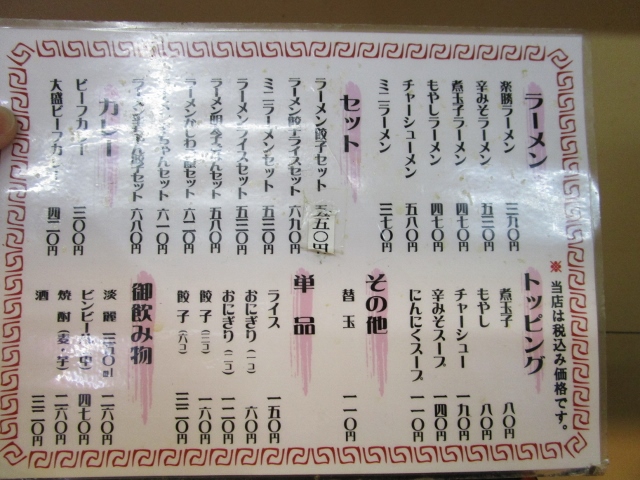 ラーメン
楽勝ラーメン 三九〇円
辛みそラーメン 五三〇円
煮玉子ラーメン 四七〇円
もやしラーメン 四七〇円
チャーシューメン 五八〇円
ミニラーメン 三七〇円
セット
ラーメン餃子セット 五五〇円
ラーメン餃子ライスセット 六九〇円
ミニラーメンセット 五三〇円
ラーメンライスセット 五三〇円
ラーメン セット 五八〇円
ラーメンかしわ セット 六二〇円
ちゃんセット 六一〇円
ラーメン セット 六八〇円
カレー
ビーフカレー 三〇〇円
大盛ビーフカ 四二〇円
※当店は税込み価格です。
トッピング
煮玉子 八〇円
もやし 八〇円
チャーシュー 一九〇円
辛みそスープ 一四〇円
にんにくスープ 一一〇円
その他
替玉 一一〇円
単品
ライス 一五〇円
おにぎり(一コ) 六〇円
おにぎり(二コ) 一二〇円
餃子(三コ) 一六〇円
餃子(六コ) 三二〇円
御飲み物
淡麗 三五〇ml 二六〇円
ビンビール(中) 四七〇円
焼酎(麦・芋) 二六〇円
酒 三二〇円